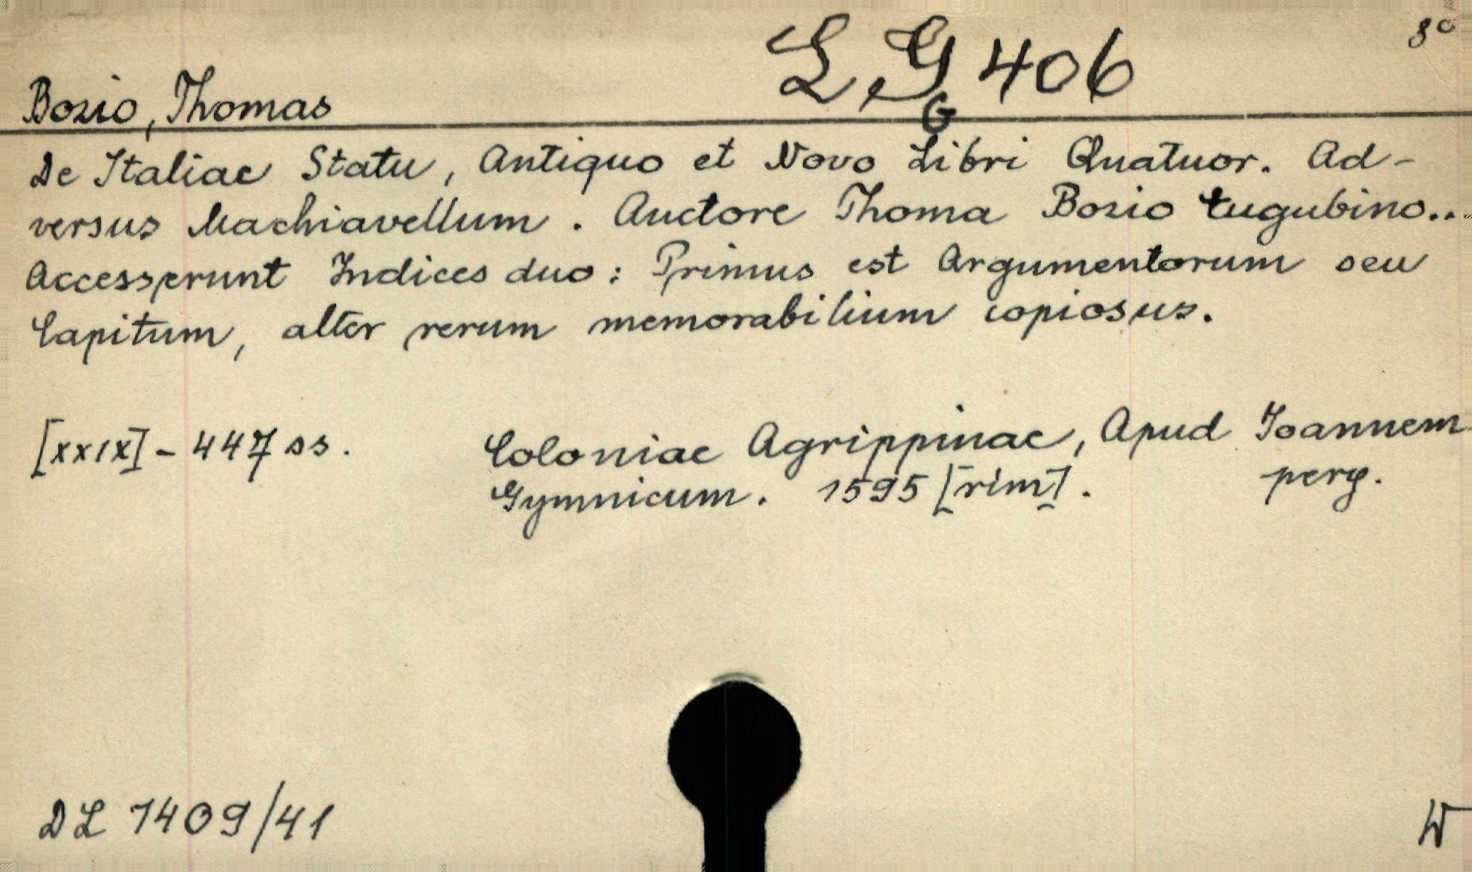 8°
L G 406
G
Bozio, Thomas
De Italiae Statu, Antiquo et Novo Libri Quatuor. Ad-
versus Machiavellum. Auctore Thoma Bozio Eugubino...
Accesserunt Indices duo: Primus est Argumentorum seu
Capitum, alter rerum memorabilium copiosus.
[XXIX] - 447 ss. Coloniae Agrippinae, Apud Joannem
Gymnicum. 1595 [rím]. perg.
DL 1409/41
W